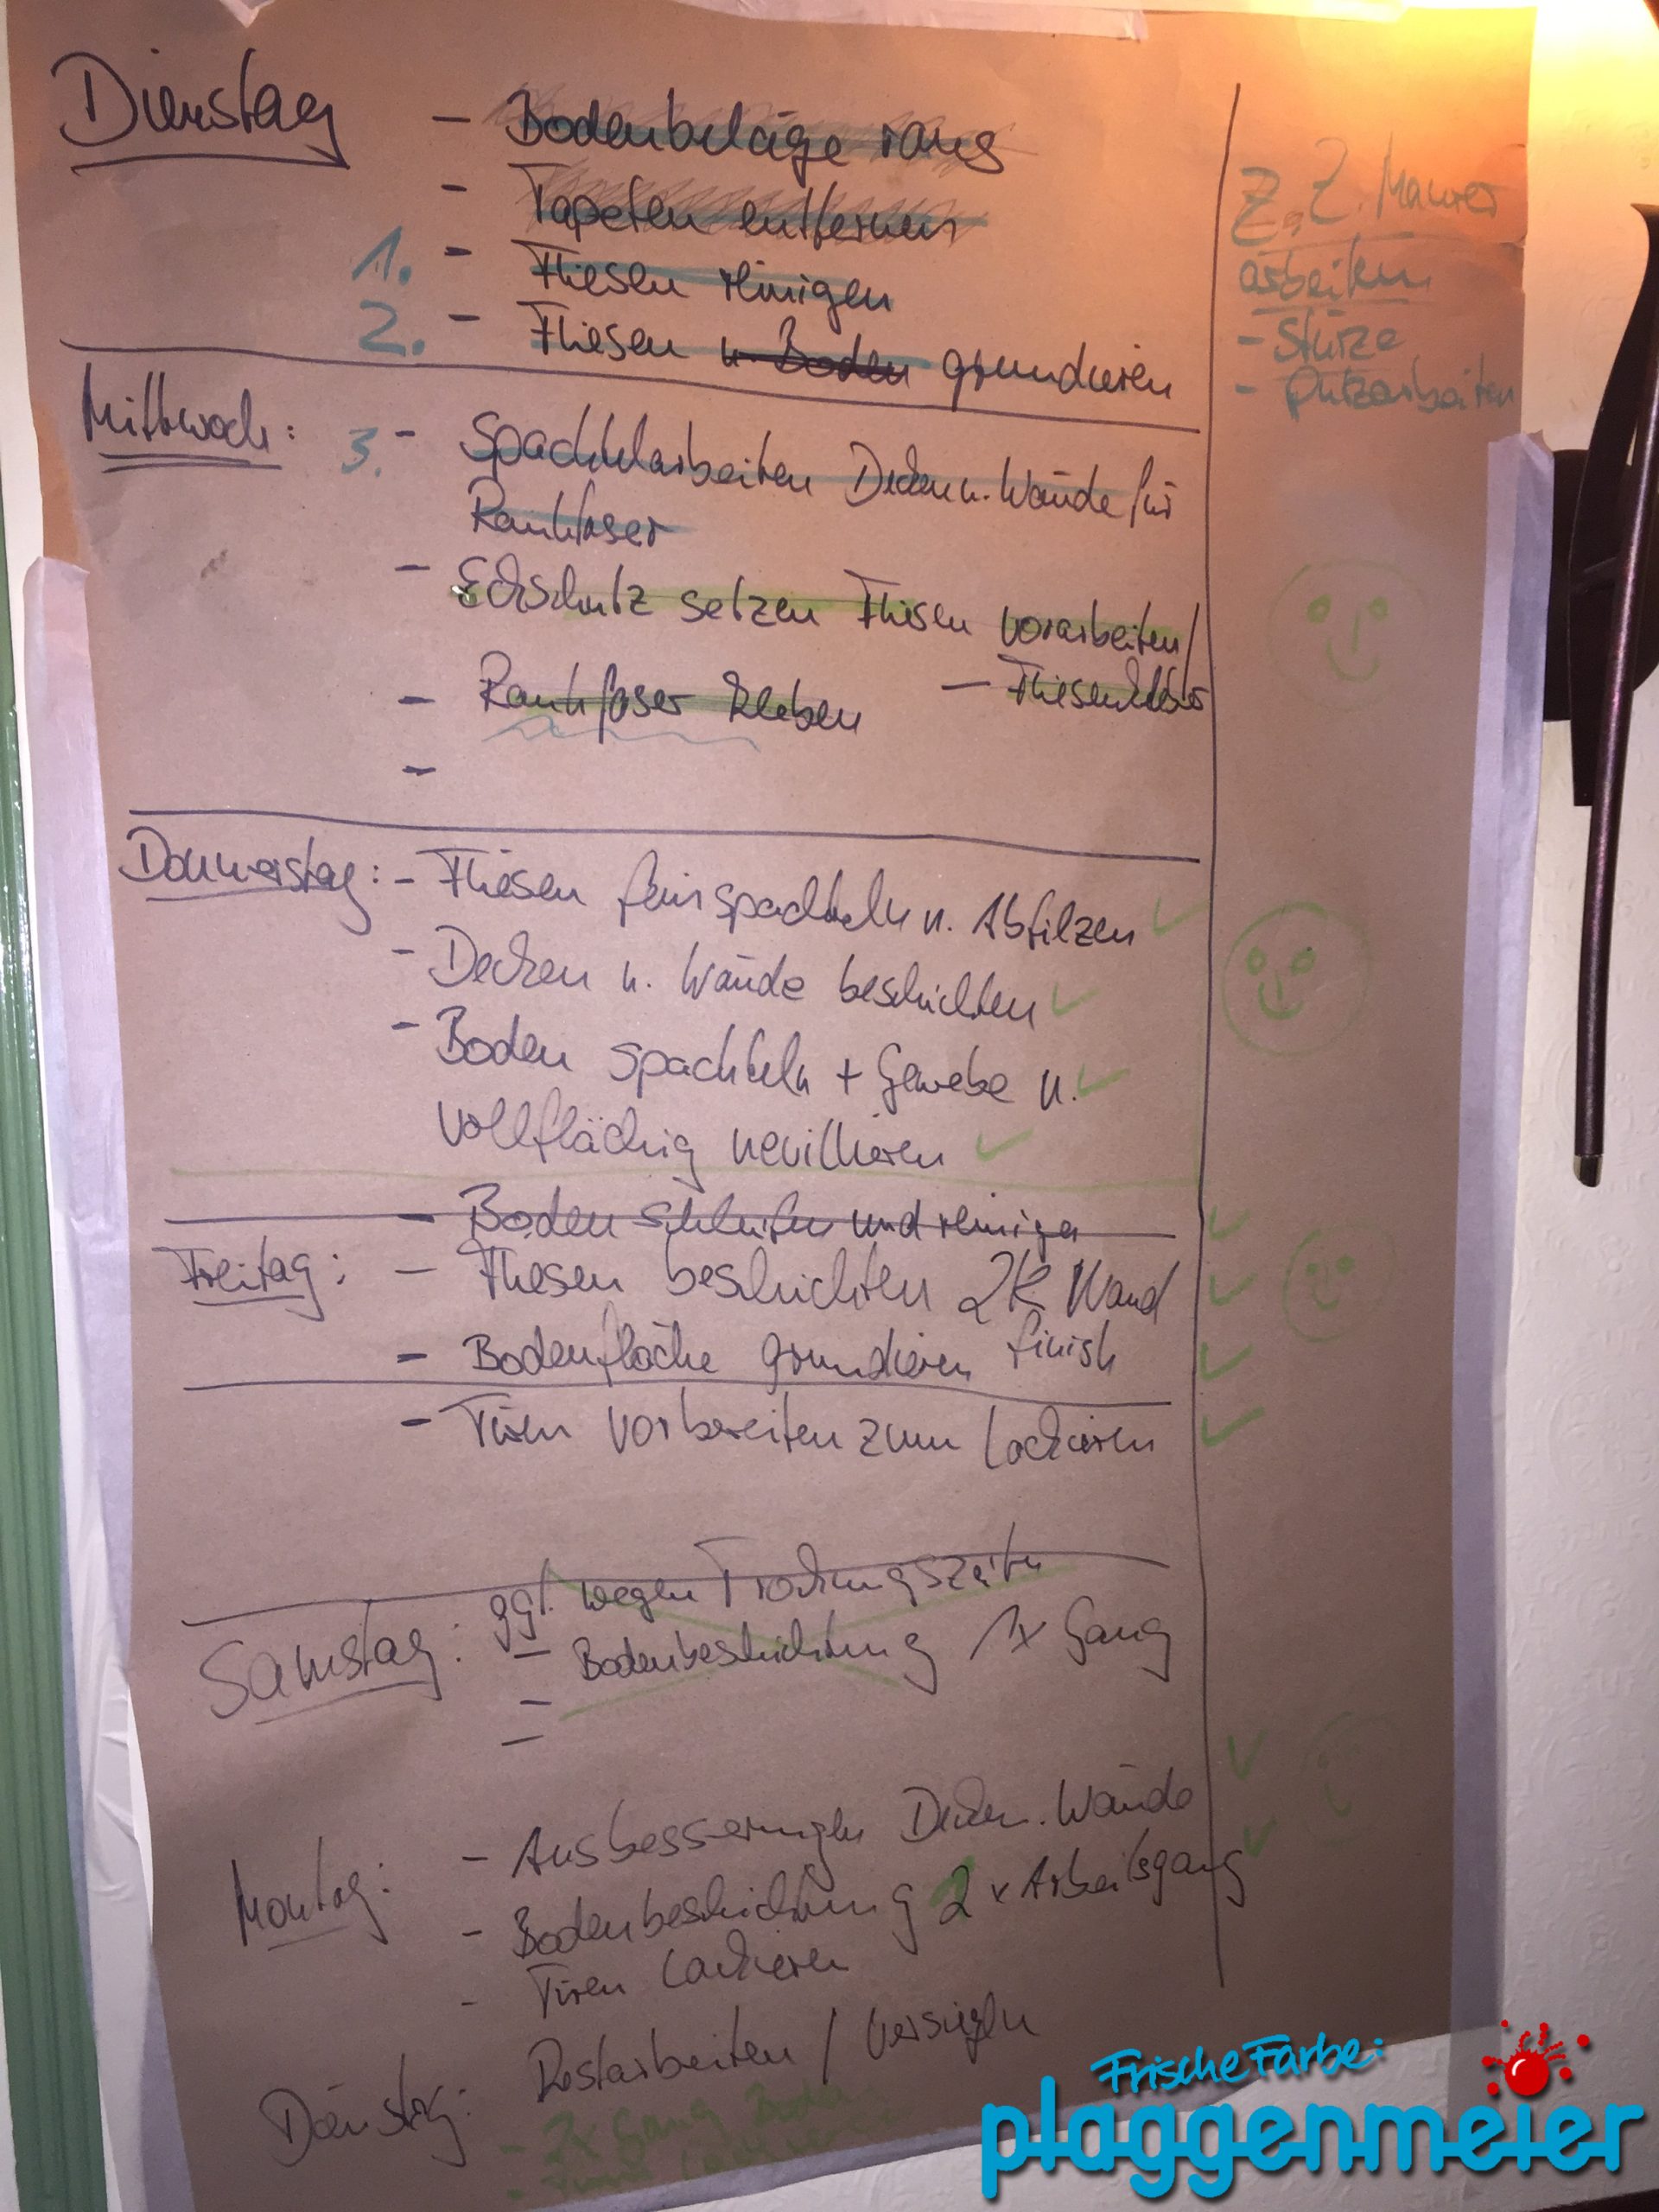 Dienstag - Bodenbeläge raus
- Tapeten entfernen
1. - Fliesen reinigen
2. - Fliesen u. Boden grundieren
Z. Z. Maurer
arbeiten
- Stürze
- Putzarbeiten
Mittwoch: 3. - Spachtelarbeiten Decken u. Wände für
Rauhfaser
- Eckschutz setzen Fliesen vorarbeiten/
- Rauhfaser kleben - Fliesenkleber
-
Donnerstag: - Fliesen feinspachteln u. Abfilzen
- Decken u. Wände beschichten
- Boden spachteln + Gewebe u.
vollflächig nevillieren
- Boden schleifen und reinigen
Freitag: - Fliesen beschichten 2K Wand
finish
- Bodenfläche grundieren
- Türen vorbereiten zum lackieren
ggf. wegen Trocknungszeiten
Samstag: - Bodenbeschichtung 1x Gang
-
-
Montag: - Ausbesserungen Decken. Wände
- Bodenbeschichtung 2 x Arbeitsgang
- Türen lackieren
Dienstag: Restarbeiten / Versiegeln
- 2x Gang Boden
-
Frische Farbe:
plaggenmeier